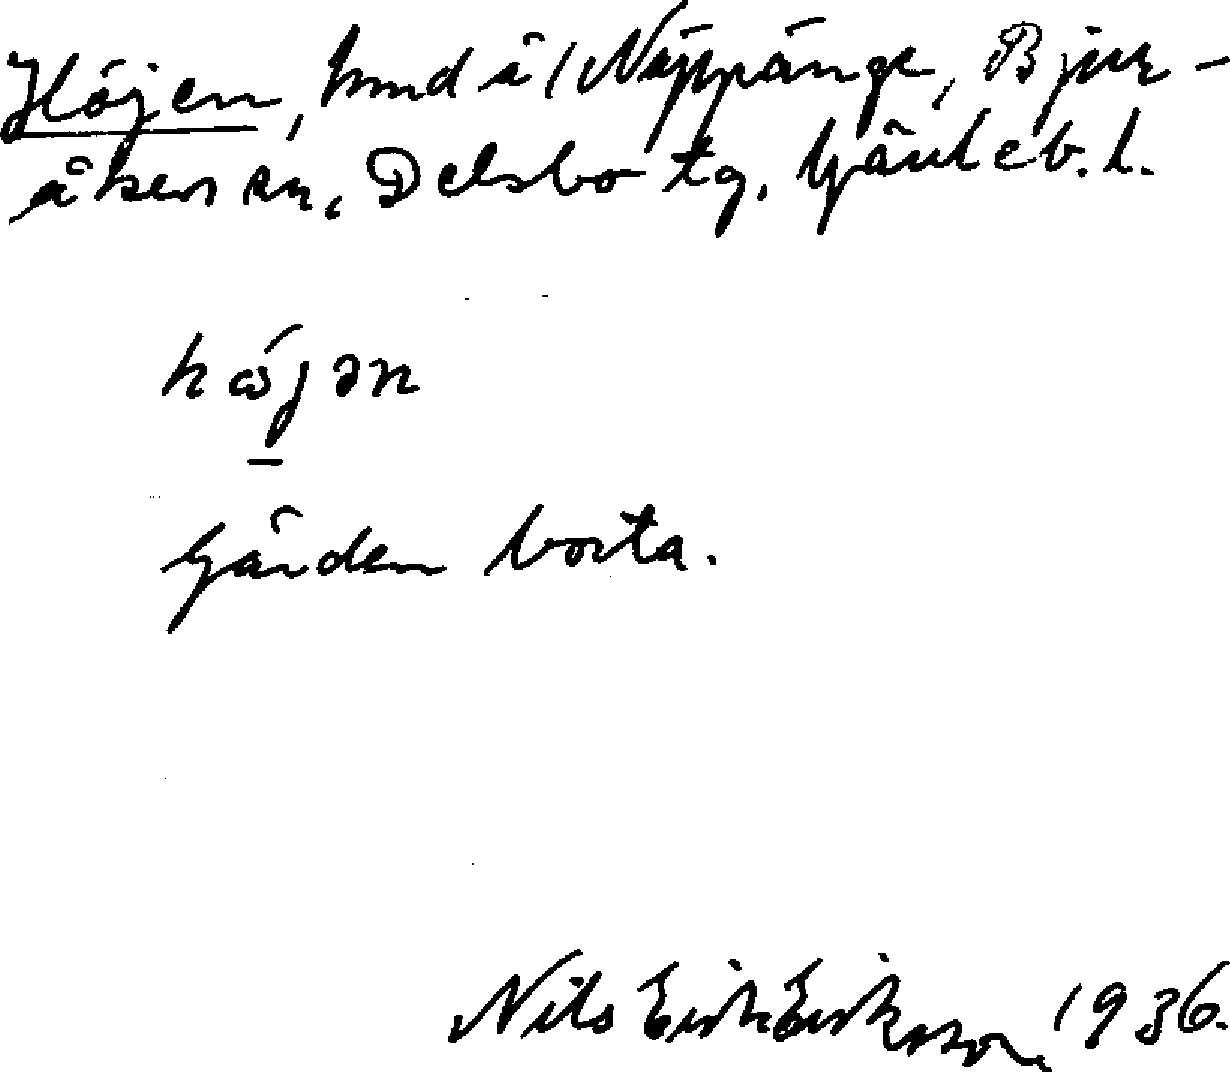 Höjen, hmd å 1 Näppänge, Bjur-
åkers sn, Delsbo tg, Gävleb. l.
hǿjən
Gården borta.
Nils Erik Eriksson, 1936.